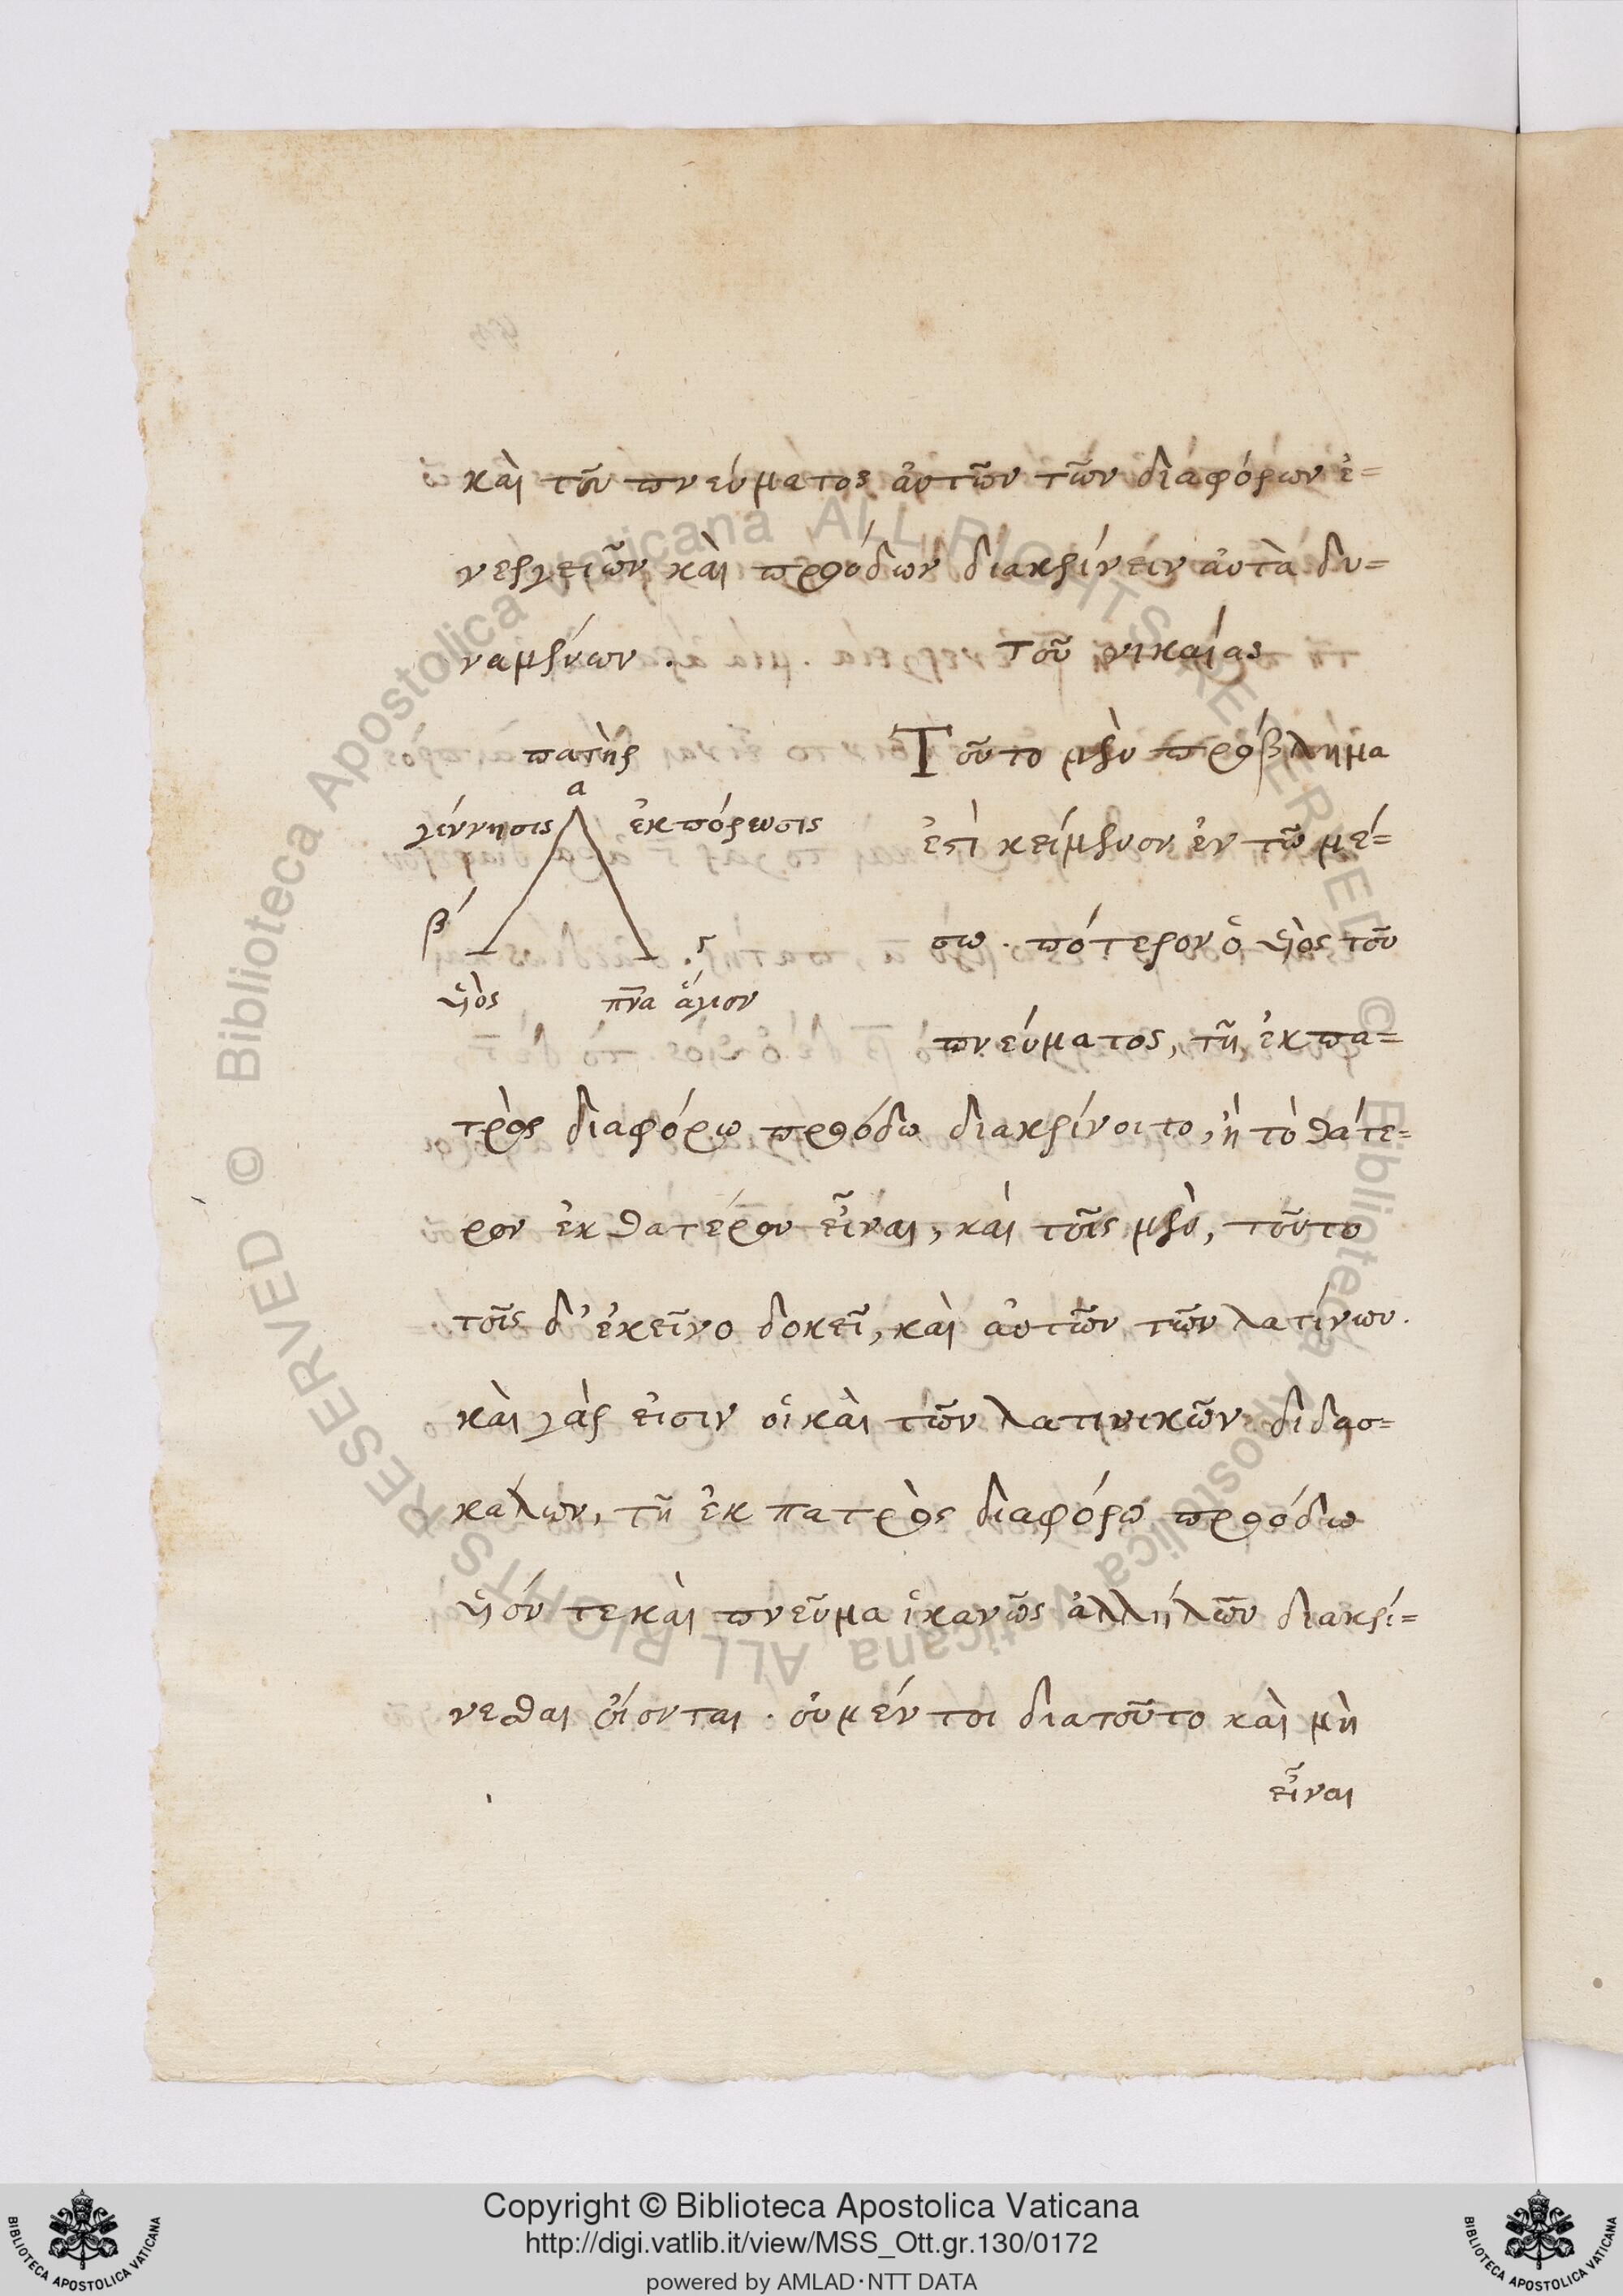 καὶ τοῦ πνεύματος αὐτῶν τῶν διαφόρων ἐ=
νεργειῶν καὶ προόδων διακρίνειν αὐτὰ δυ=
ναμένων .
τοῦ νικαίας
πατὴρ
α
γέννησις
ἐκπόρευσις
β
ὑιὸς
γ
πνα ἅγιον
Τοῦτο μὲν πρόβλημα
ἐστὶ κείμενον ἐν τῶ μέ=
σω . πότερον ὁ ὑιὸς τοῦ
πνεύματος, τῆ ἐκ πα=
τρὸς διαφόρω προόδω διακρίνοιτο, ἢ τὸ θάτε=
ρον ἐκ θατέρου εἶναι, καὶ τοῖς μὲν, τοῦτο
τοῖς δ' ἐκεῖνο δοκεῖ, καὶ αὐτῶν τῶν λατίνων.
καὶ γάρ εἰσιν οἱ καὶ τῶν λατινικῶν διδασ=
κάλων, τῆ ἐκ πατρὸς διαφόρω προόδω
ὑιόν τε καὶ πνεῦμα ἱκανῶς ἀλλήλων διακρί=
νεσθαι οἴονται . οὐ μέν τοι διατοῦτο καὶ μὴ
εἶναι
Copyright © Biblioteca Apostolica Vaticana
http://digi.vatlib.it/view/MSS_Ott.gr.130/0172
powered by AMLAD·NTT DATA
BIBLIOTECA APOSTOLICA VATICANA
BIBLIOTECA APOSTOLICA VATICANA
© Biblioteca Apostolica Vaticana ALL RIGHTS RESERVED
© Biblioteca Apostolica Vaticana ALL RIGHTS RESERVED